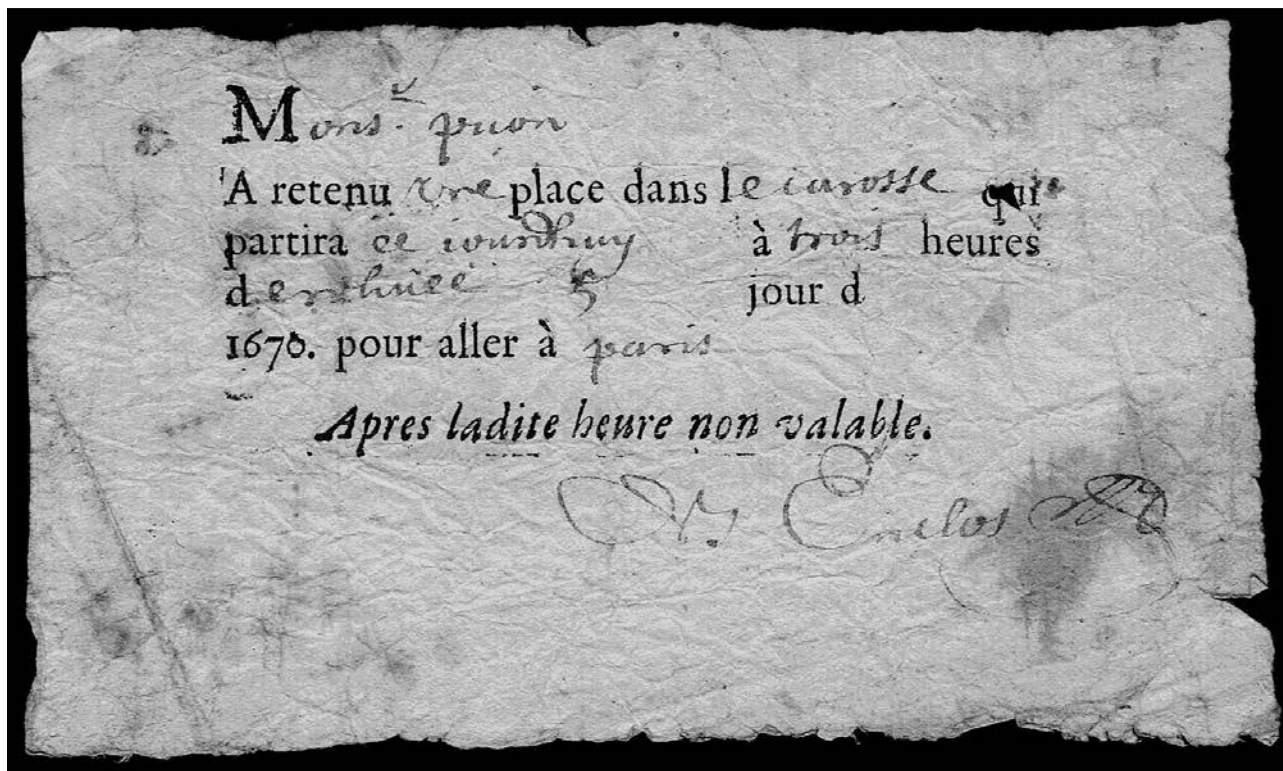 Monsr. prion
A retenu vne place dans le carosse qui
partira ce iourdhuy à trois heures
de relluee 5 jour d
1670. pour aller à paris
Apres ladite heure non valable.
Enclos